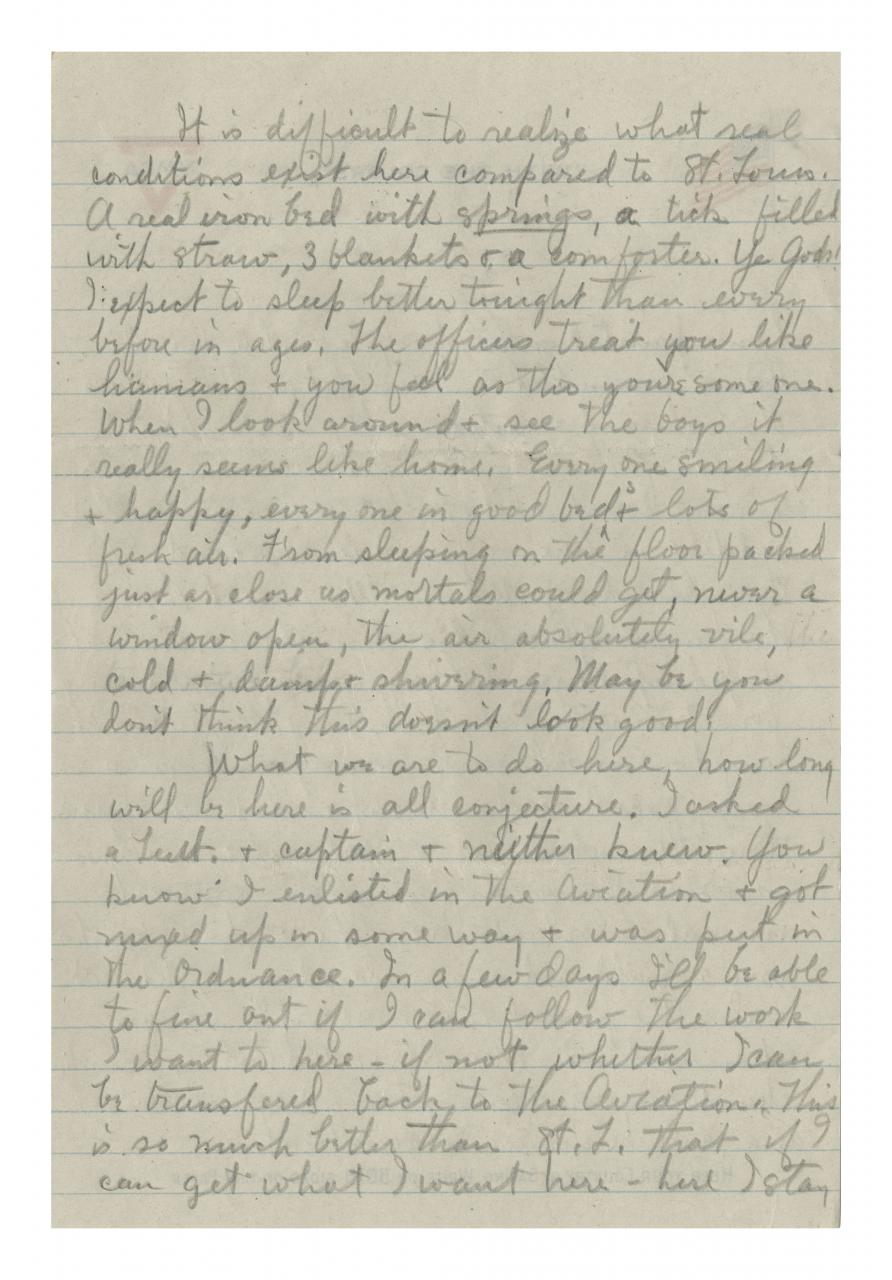 It is difficult to realize what real
conditions exist here compared to St. Louis.
A real iron bed with springs, a tick filled
with straw, 3 blankets & a comforter. Ye Gods!
I expect to sleep better tonight than every
before in ages. The officers treat you like
humans + you feel as tho you're some one.
When I look around + see the boys it
really seems like home. Every one smiling
+ happy, every one in good beds + lots of
fresh air. From sleeping on the floor packed
just as close as mortals could get, never a
window open, the air absolutely vile,
cold + damp + shivering. May be you
don't think this doesn't look good.
What we are to do here, how long
will be here is all conjecture. I asked
a Lieut. + captain + neither knew. You
know I enlisted in the Aviation + got
mixed up in some way + was put in
the Ordnance. In a few days I'll be able
to fine out if I can follow the work
I want to here - if not whether I can
be transfered back to the Aviation. This
is so much better than St. L. that if I
can get what I want here - here I stay